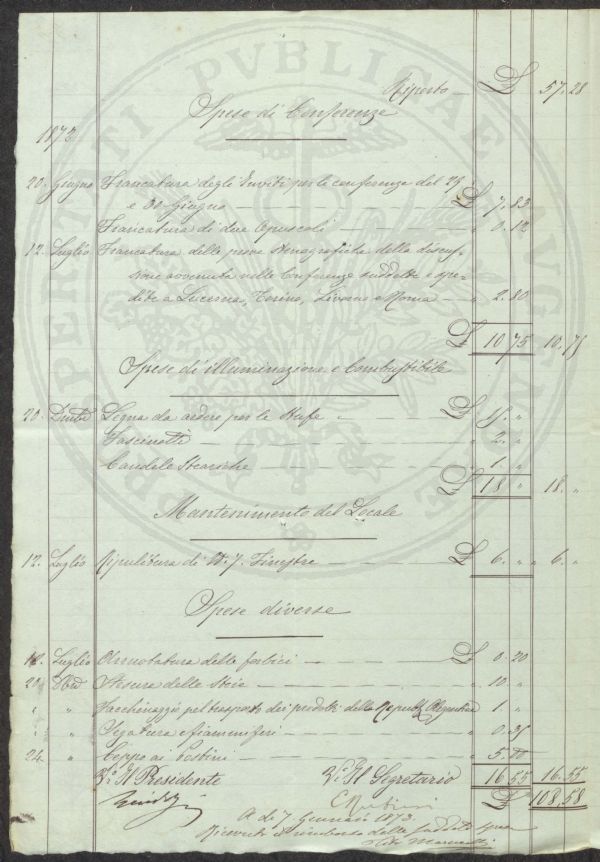 Riporto — £ 57.28
Spese di Conferenze
1872
20. Giugno Francatura degli Inviti per le conferenze del 29
e 30 Giugno — £ 7.83
Francatura di due Opuscoli — " 0.12
12. Luglio Francatura delle prove stenografiche della discus-
sione avvenuta nelle Conferenze suddette e spe-
dite a Lucerna, Torino, Livorno e Roma — " 2.80
£ 10.75 10.75
Spese di illuminazione e Combustibile
20. Legna da ardere per le Stufe — £ 15. "
Fascinotti — " 2. "
Candele Steariche — " 1. "
£ 18 " 18. "
Mantenimento del Locale
12. Luglio Ripulitura di N. 7. Finestre — £ 6. " " 6. "
Spese diverse
12. Luglio Arruotatura delle forbici — £ 0.20
20. Xbre Stesura delle Stoie — " 10. "
" " Facchinaggio pel trasporto dei prodotti della Repubb. Argentina 1 "
" " Segatura — " 0.35
24. " Ceppo ai Postini — " 5.00
V.o Il Presidente V.o Il Segretario 16.55 16.55
C Rubini £ 108.58
A dì 7. Gennaio 1873.
Ricevuti il rimborso delle suddette spese
PROSPERITATI PVBLICAE AVGENDAE